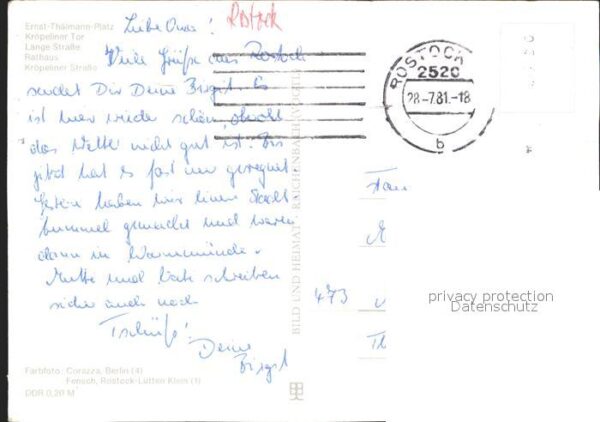 Ernst-Thälmann-Platz
Kröpeliner Tor
Lange Straße
Rathaus
Kröpeliner Straße
Rostock
Liebe Oma!
Viele Grüße aus Rostock
sendet Dir Deine Birgit. Es
ist hier wieder schön, obwohl
das Wetter nicht gut ist. Bis
jetzt hat es fast nur geregnet.
Gestern haben wir einen Stadt
bummel gemacht und waren
dann in Warnemünde.
Mutti und Vati schreiben
sicher auch noch
Tschüß!
Deine
Birgit
ROSTOCK
2520
28-7.81.-18
b
Frau
473
Th
BILD UND HEIMAT · REICHENBACH (VOGTL)
privacy protection
Datenschutz
Farbfoto: Corazza, Berlin (4)
Fensch, Rostock-Lütten Klein (1)
DDR 0,20 M